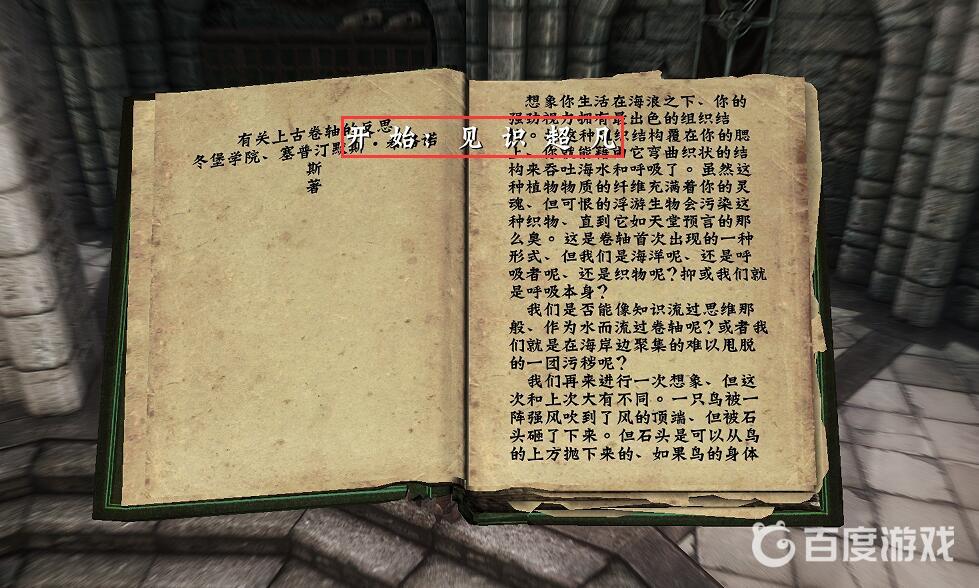 有关上古卷轴的反思
冬堡学院、塞普汀默斯·
斯
著
开始 见识超凡
想象你生活在海浪之下、你的
强劲视力拥有最出色的组织结
。 这种 织结构覆在你的腮
、你 能 它弯曲织状的结
构来吞吐海水和呼吸了。虽然这
种植物物质的纤维充满着你的灵
魂、但可恨的浮游生物会污染这
种织物、直到它如天堂预言的那
么臭。这是卷轴首次出现的一种
形式、但我们是海洋呢、还是呼
吸者呢、还是织物呢?抑或我们就
是呼吸本身?
我们是否能像知识流过思维那
般、作为水而流过卷轴呢?或者我
们就是在海岸边聚集的难以甩脱
的一团污秽呢?
我们再来进行一次想象、但这
次和上次大有不同。一只鸟被一
阵强风吹到了风的顶端、但被石
头砸了下来。但石头是可以从鸟
的上方抛下来的、如果鸟的身体
百度游戏